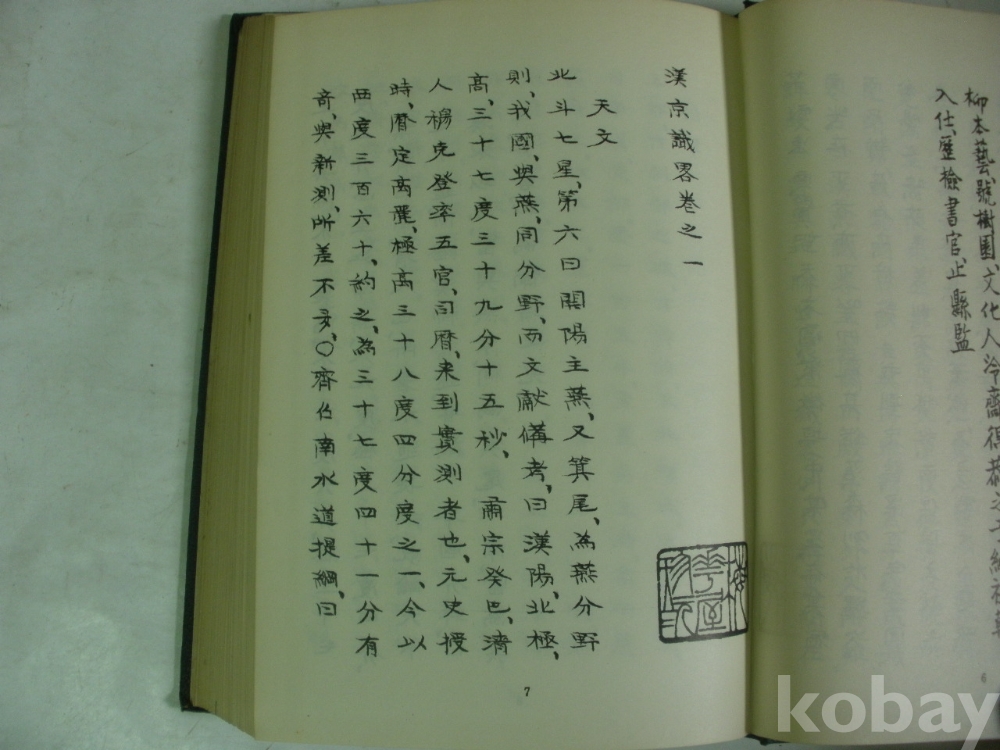 柳本藝、號樹園、文化人、泠齋得恭之子
入仕、歷檢書官、止縣監
漢京識畧卷之一
天文
北斗七星、第六曰開陽主燕、又箕尾、為燕分野
則、我國、與燕、同分野、而文獻備考、曰漢陽、北極、
高、三十七度三十九分十五秒、肅宗癸巳、淸
人穆克登率五官、司曆、来到實測者也、元史授
時、曆定高麗、極高三十八度四分度之一、今以
西度三百六十、約之、為三十七度四十一分有
奇、與新測、所差不多、〇齊召南水道提綱、曰
7
6
kobay